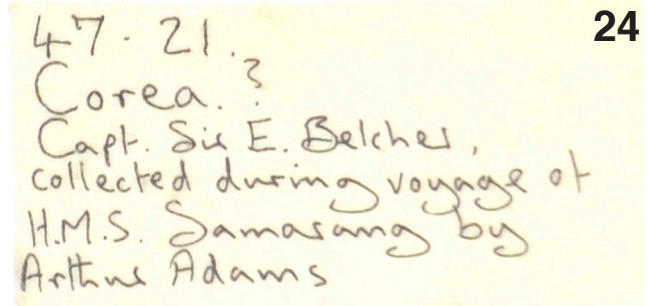 24
47. 21.
Corea.?
Capt. Sir E. Belcher,
collected during voyage of
H.M.S. Samarang by
Arthur Adams